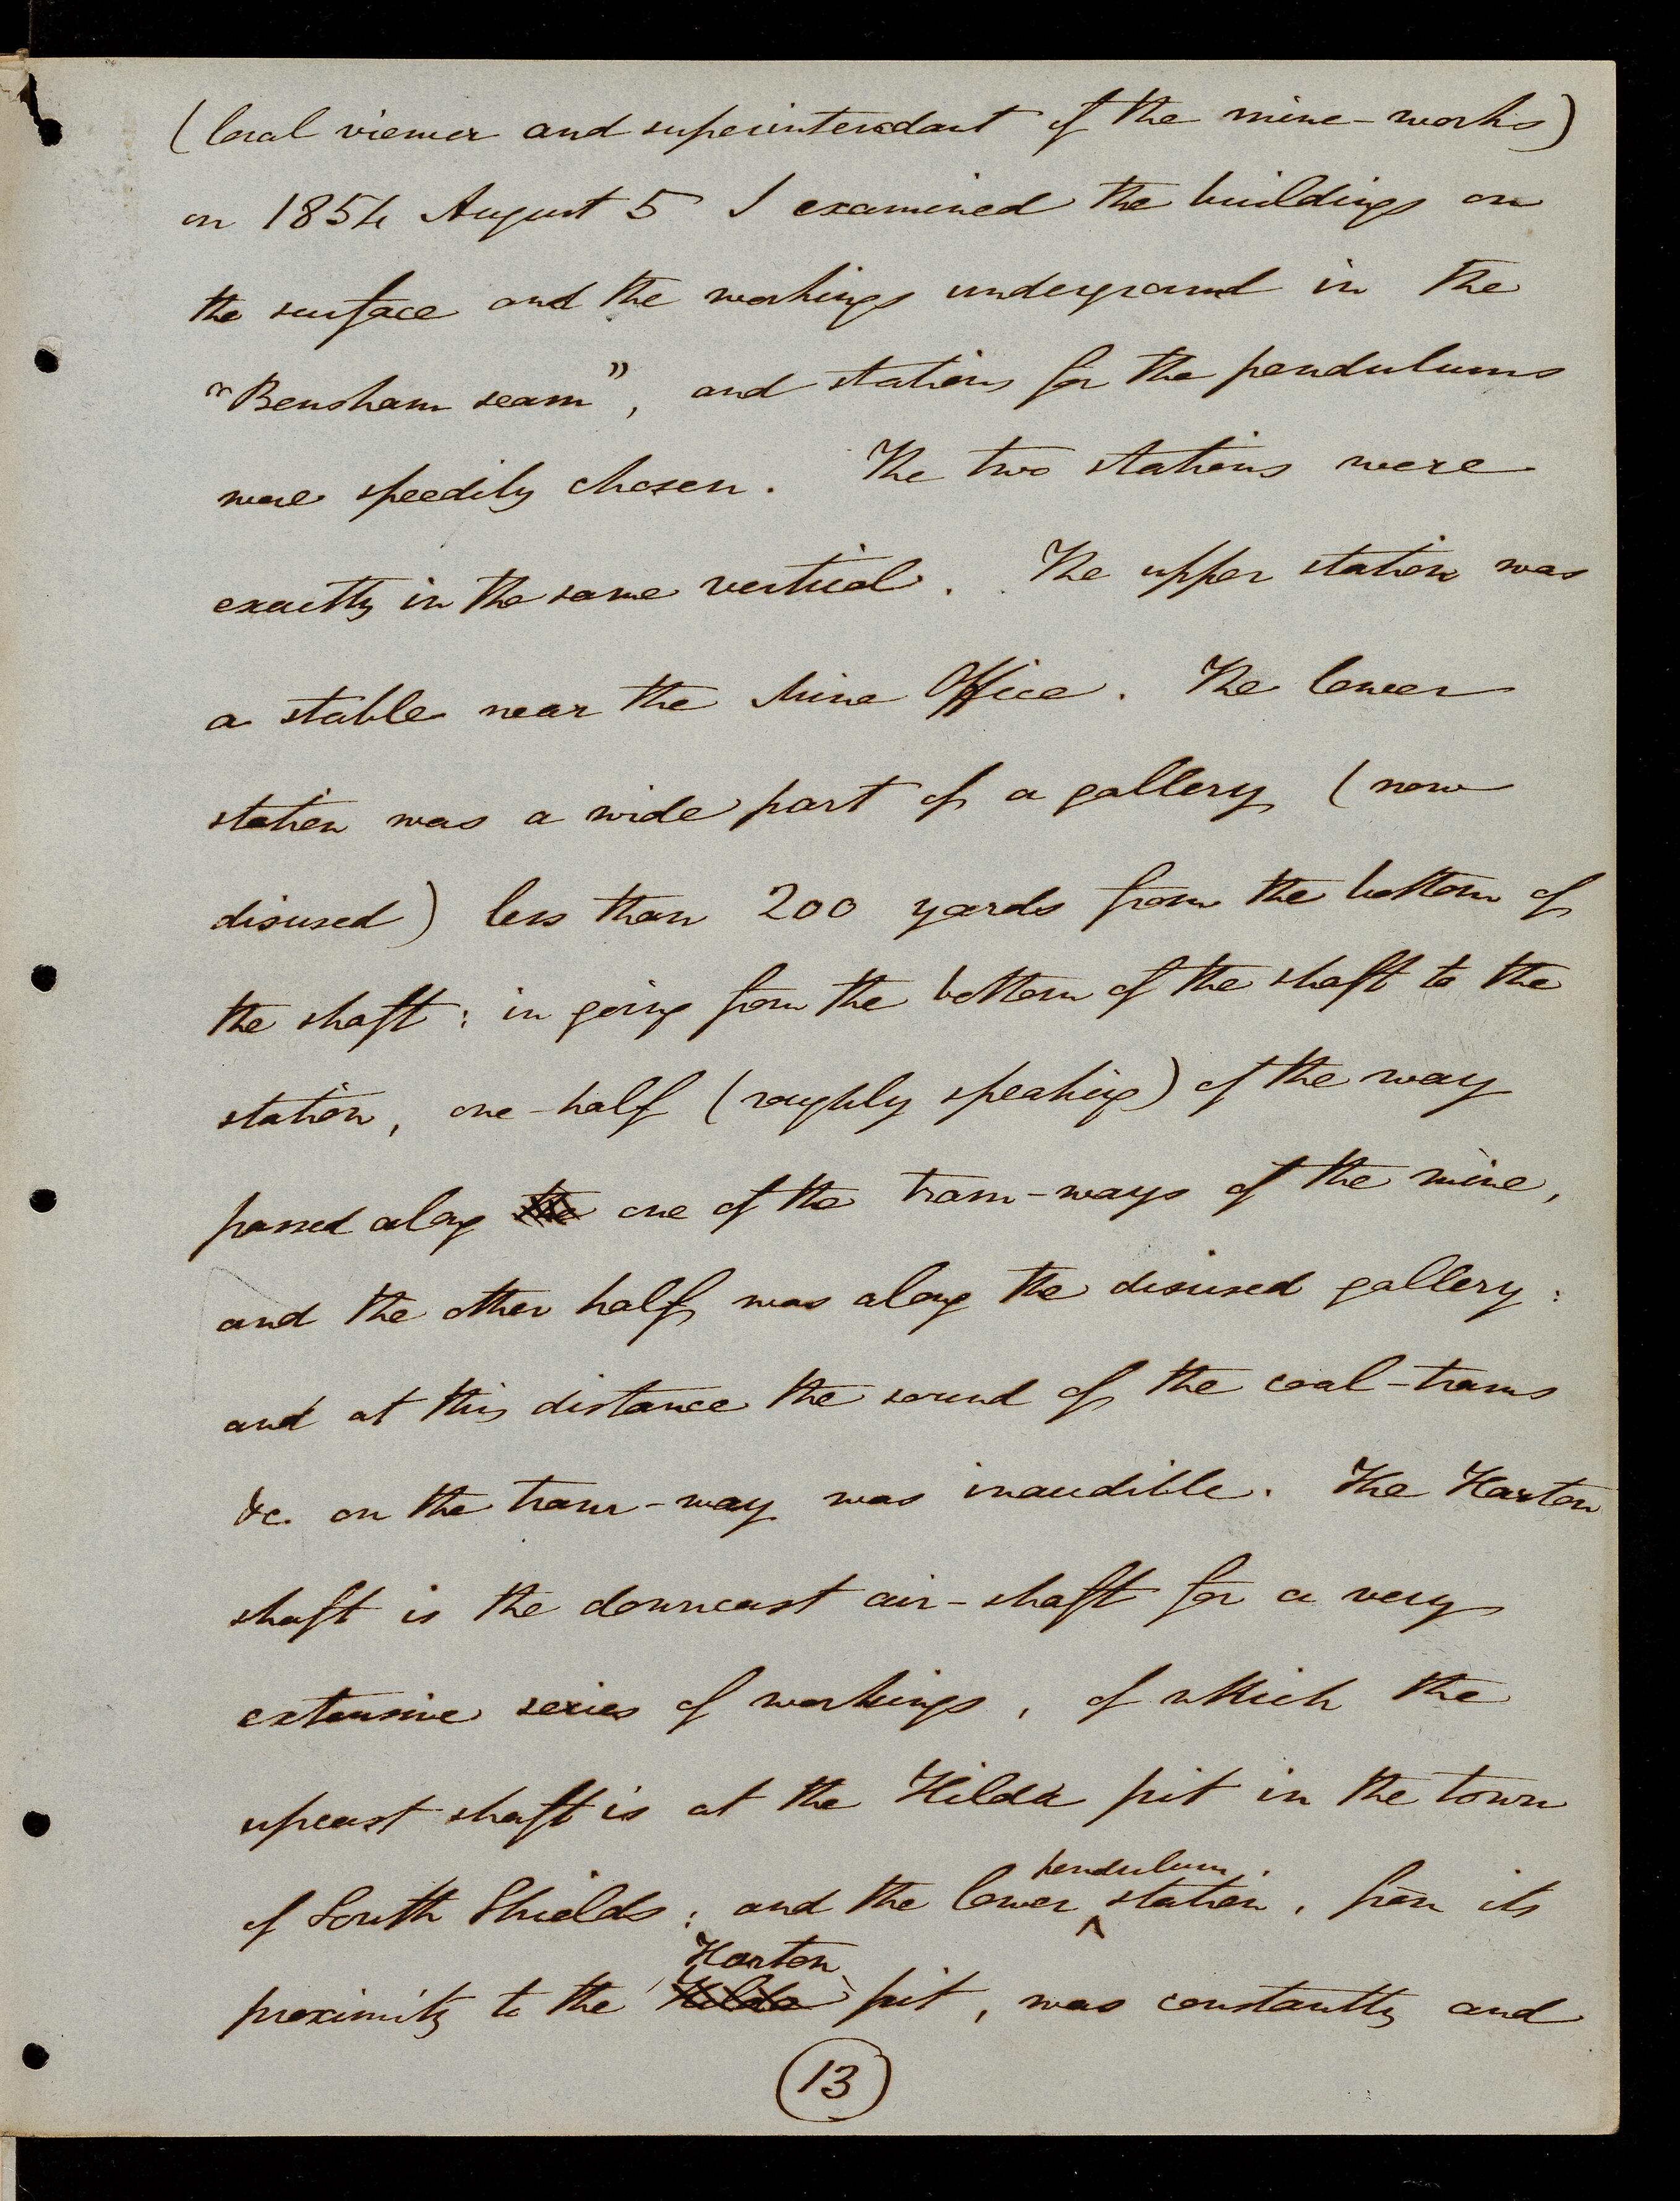 (local viewer and superintendant of the mine-works)
on 1854 August 5 I examined the buildings on
the surface and the workings underground in the
"Bensham seam", and stations for the pendulums
were speedily chosen. The two stations were
exactly in the same vertical. The upper station was
a stable near the Mine Office. The lower
station was a wide part of a gallery (now
disused) less than 200 yards from the bottom of
the shaft: in going from the bottom of the shaft to the
station, one-half (roughly speaking) of the way
passed along the one of the tram-ways of the mine,
and the other half was along the disused gallery:
and at this distance the sound of the coal-trams
&c. on the tram-way was inaudible. The Harton
shaft is the downcast air-shaft for a very
extensive series of workings, of which the
upcast shaft is at the Hilda pit in the town
pendulum
of South Shields: and the lower ^ station, from its
Harton
proximity to the Hilda pit, was constantly and
13